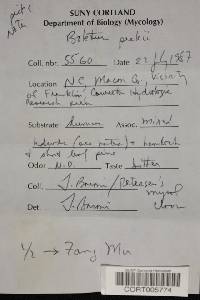 pict &
note
SUNY CORTLAND
Department of Biology (Mycology)
Boletus peckii
Coll. nbr. 5560 Date 23 July 1987
Location N.C. Macon Co., vicinity
of Franklin, Coweeta Hydrologic
Research
Substrate humus Assoc. mixed
hemlock
& short leaf pine
Odor N.D. Taste bitter
Coll. T. Baroni / Petersen's
mycol
Det. T. Baroni
1/2 → Fang Mu
BARCODE
CORT005774